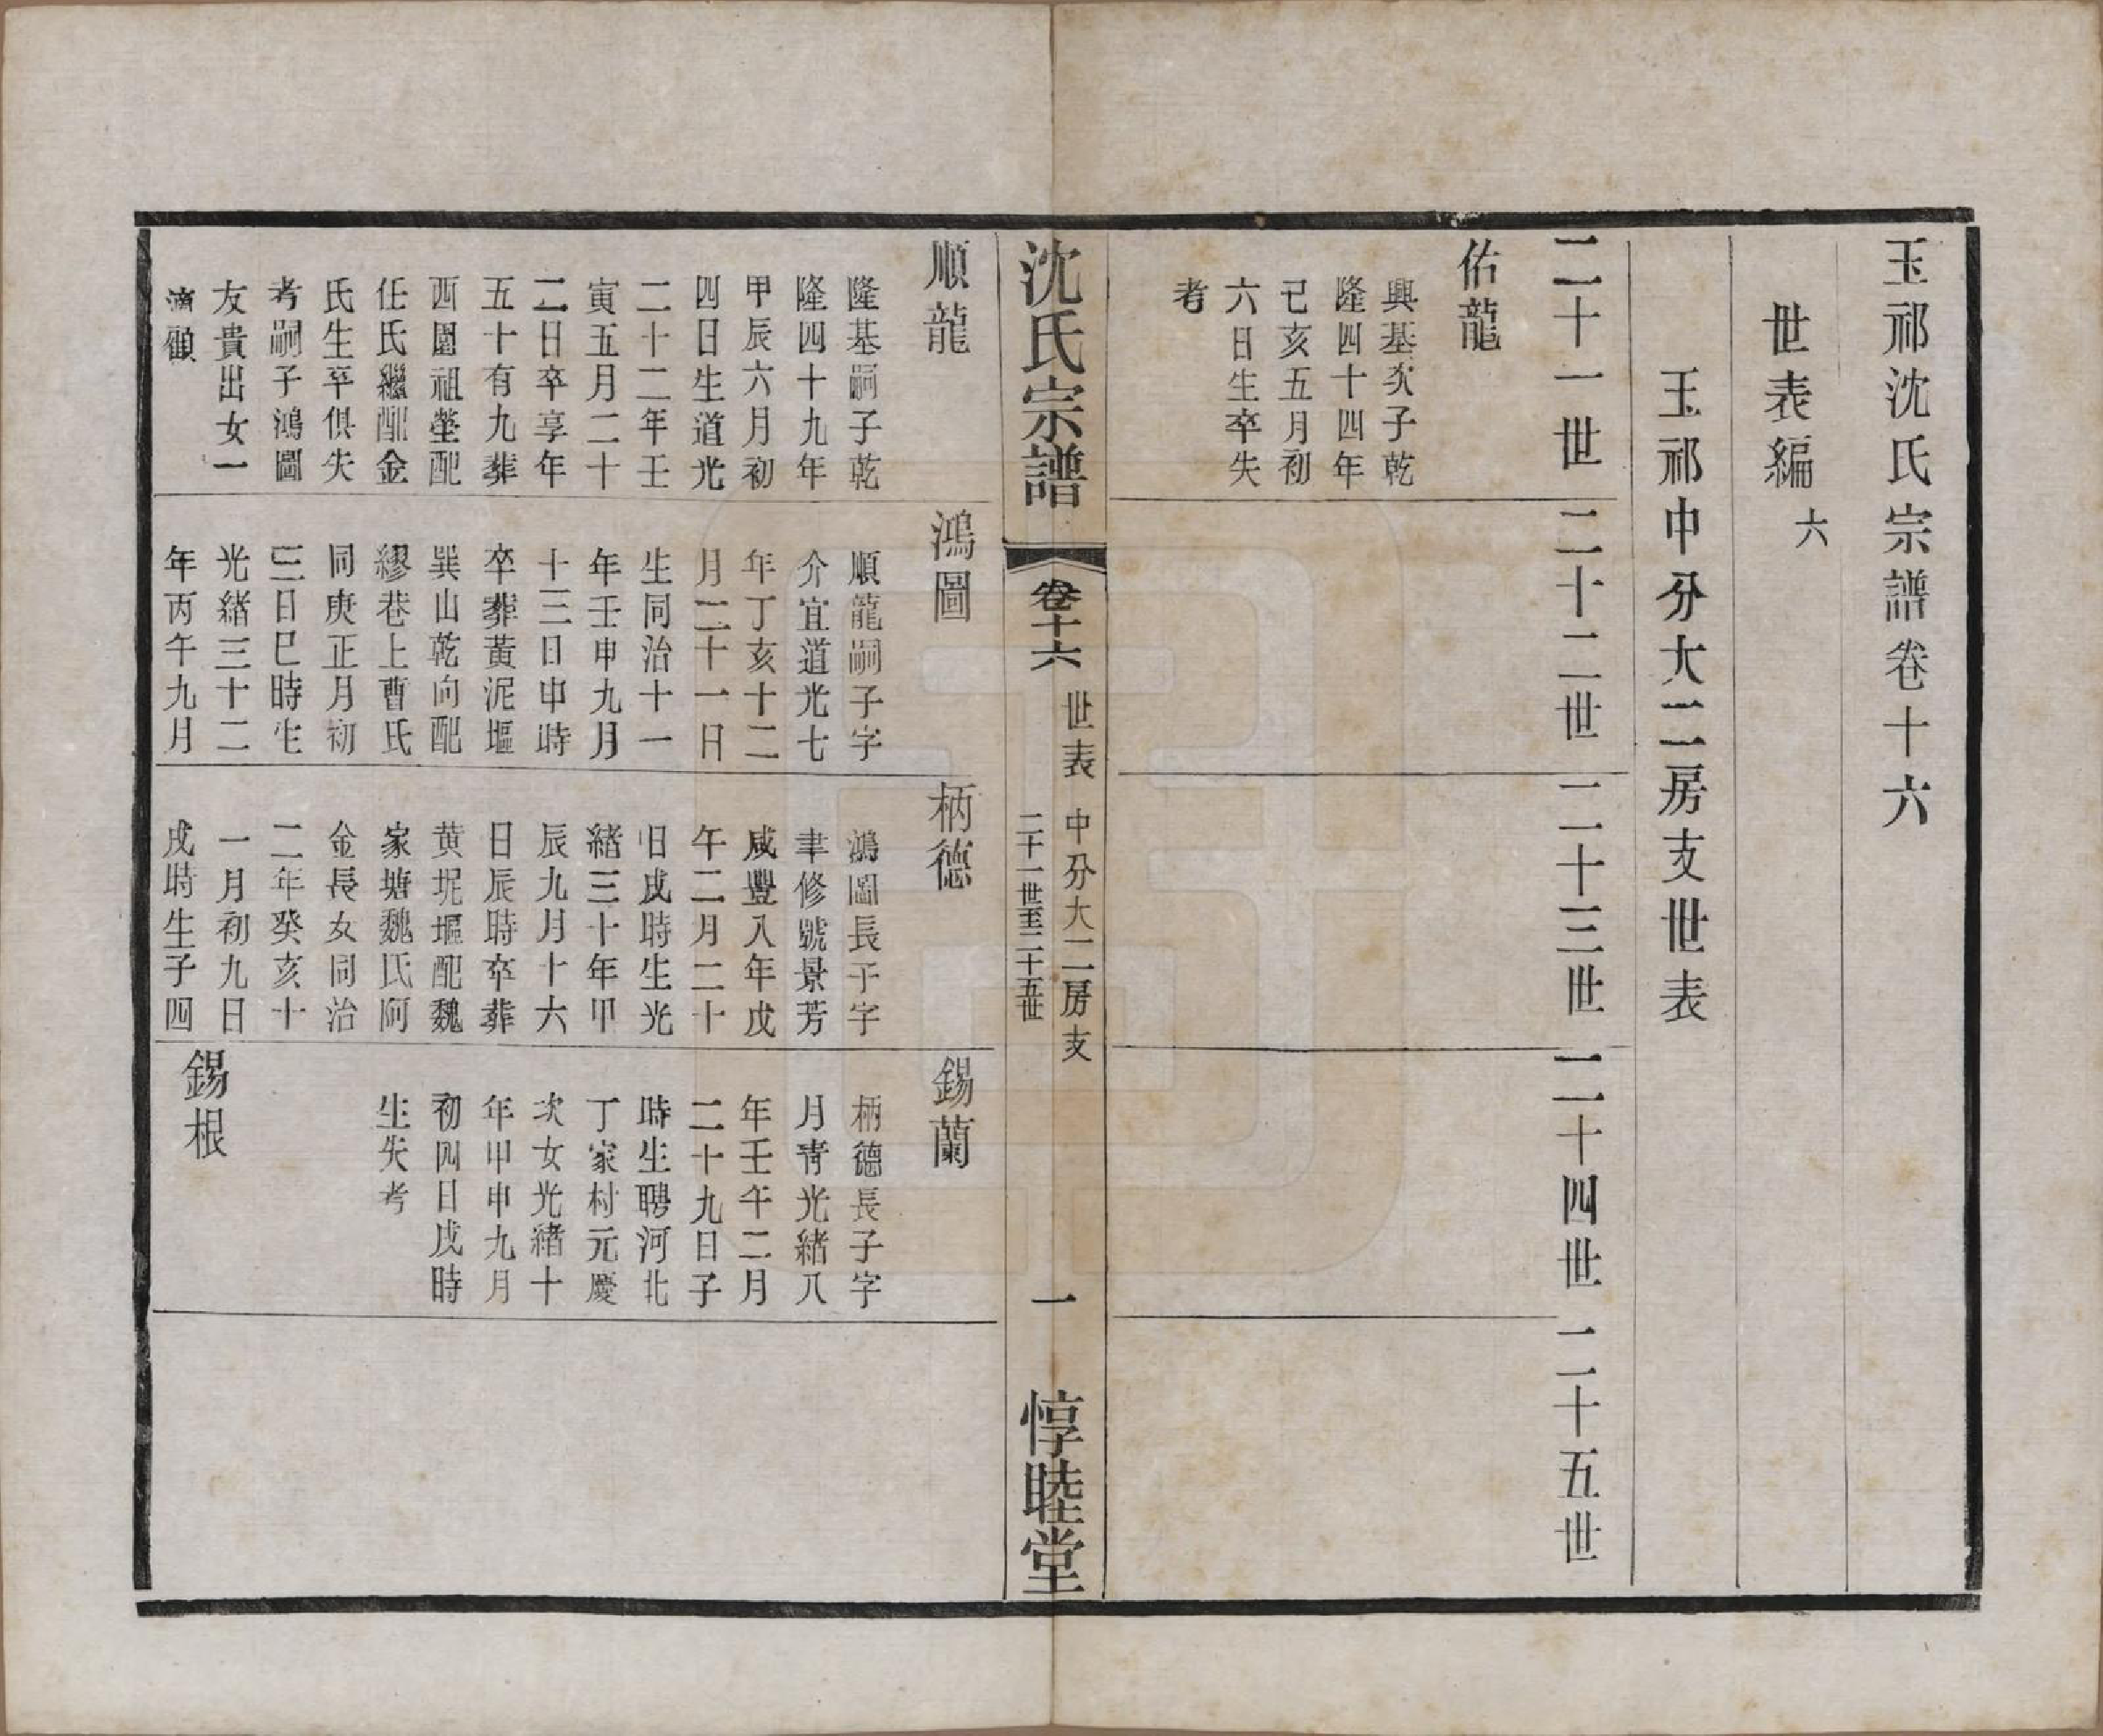 玉祁沈氏宗譜卷十六
世表編
六
玉祁中分大二房支世表
二十一世
二十二世
二十三世
二十四世
二十五世
佑龍
興基次子乾
隆四十四年
己亥五月初
六日生卒失
考
沈氏宗譜
卷十六
世表
中分大二房支
二十一世至二十五世
一
惇睦堂
順龍
隆基嗣子乾
隆四十九年
甲辰六月初
四日生道光
二十二年壬
寅五月二十
二日卒享年
五十有九葬
西園祖塋配
任氏繼配金
氏生卒俱失
考嗣子鴻圖
友貴出女一
適顧
鴻圖
順龍嗣子字
介宜道光七
年丁亥十二
月二十一日
生同治十一
年壬申九月
十三日申時
卒葬黃泥堰
巽山乾向配
繆巷上曹氏
同庚正月初
三日巳時生
光緒三十二
年丙午九月
柄德
鴻圖長子字
聿修號景芳
咸豐八年戊
午二月二十
日戌時生光
緒三十年甲
辰九月十六
日辰時卒葬
黄坭堰配魏
家塘魏氏阿
金長女同治
二年癸亥十
一月初九日
戌時生子四
錫蘭
柄德長子字
月青光緒八
年壬午二月
二十九日子
時生聘河北
丁家村元慶
次女光緒十
年甲申九月
初四日戌時
生失考
錫根